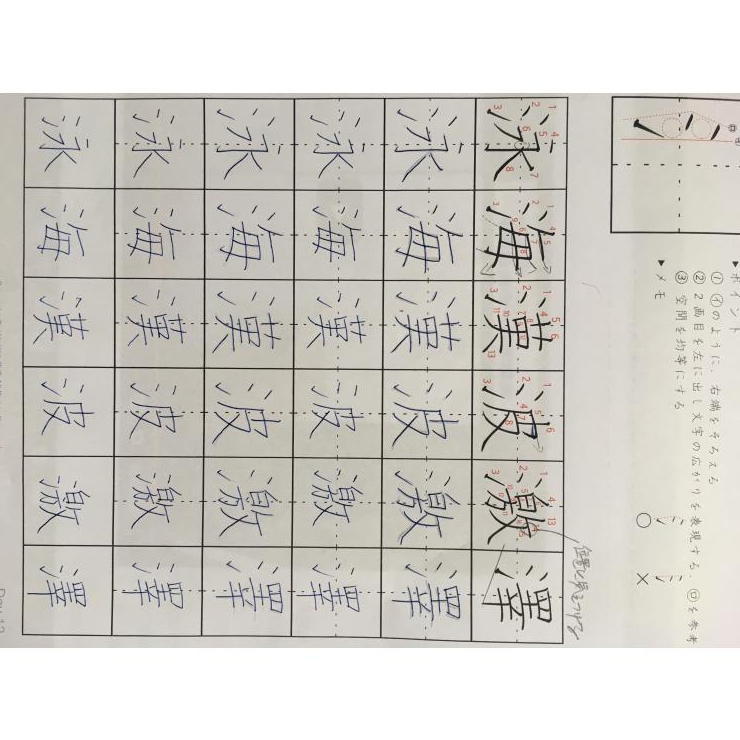 ▼ポイント
①㋑のように、右端をそろえる
②2画目を左に出し文字の広がりを表現する、㋺を参考
③空間を均等にする
▼メモ
○ ×
位置に気をつける
泳海漢波激澤
泳海漢波激澤
泳海漢波激澤
泳海漢波激澤
泳海漢波激澤
泳海漢波激澤